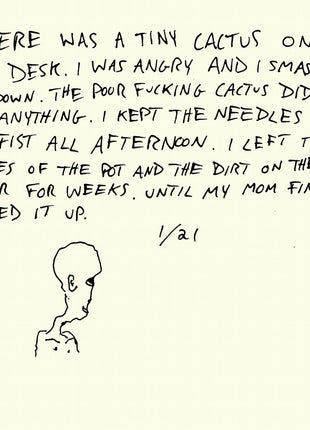 ERE WAS A TINY CACTUS ON
DESK. I WAS ANGRY AND I SMAS
DOWN. THE POOR FUCKING CACTUS DID
ANYTHING. I KEPT THE NEEDLES
FIST ALL AFTERNOON. I LEFT T
ES OF THE POT AND THE DIRT ON THE
R FOR WEEKS. UNTIL MY MOM FIN
ED IT UP.
1/21